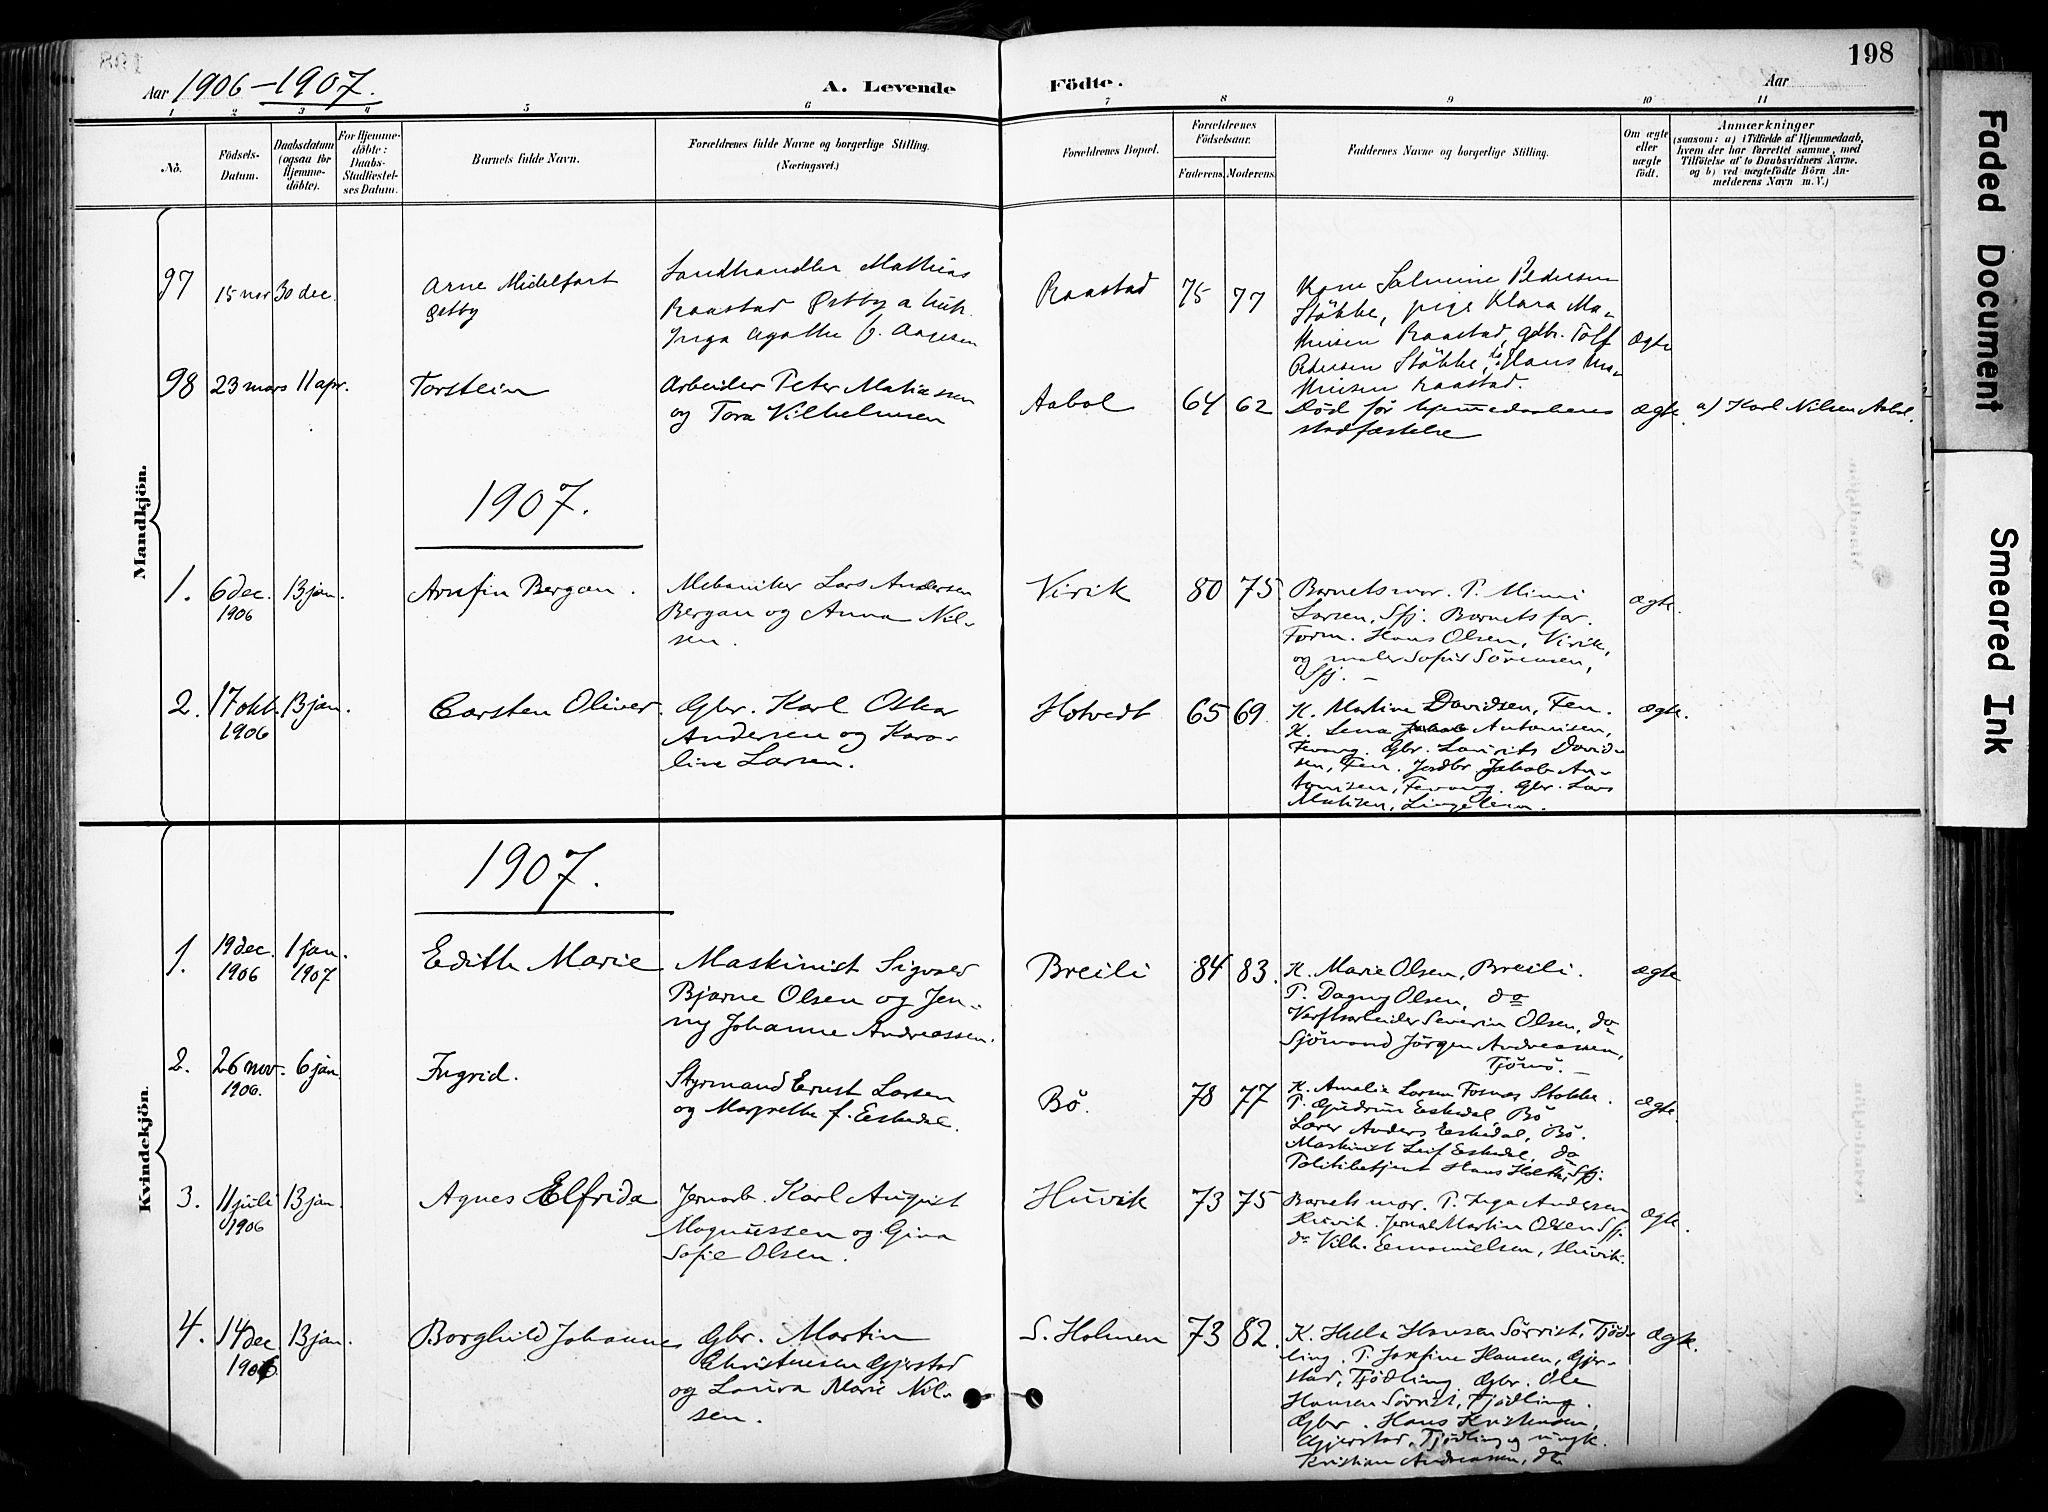 198
Aar 1906–1907.
A. Levende Födte.
Aar
1 2 3 4 5 6 7 8 9 10 11
No.
Födsels-Datum.
Daabsdatum (ogsaa for Hjemmedöbte).
For Hjemmedöbte: Daabs-Stadfæstelses Datum.
Barnets fulde Navn.
Forældrenes fulde Navne og borgerlige Stilling. (Næringsvei.)
Forældrenes Bopæl.
Forældrenes Födselsaar.
Faderens. Moderens.
Faddernes Navne og borgerlige Stilling.
Om ægte eller uægte födt.
Anmærkninger
(saasom: a) i Tilfælde af Hjemmedaab, hvem der har forrettet samme, med Tilföielse af to Daabsvidners Navne. og b) ved uægtefödte Börn Anmelderens Navn m. V.)
Mandkjön.
97 15 nov 30 dec.
Arne Midelfart
Østby
Landhandler Mathias
Raastad Østby a hust.
Inga Agathe f. Aagesen
Raastad 75 77
Kone Salmine Pedersen
Stökke, pige Klara Ma-
thisen Raastad, gdbr. Tolf
Pedersen Stökke, Hans Ma-
thisen Raastad.
ægte
98 23 mars 11 apr.
Torstein
Arbeider Peter Matiassen
og Tora Vilhelmsen
Aabol 64 62
Död før hjemmedaabens
stadfæstelse
ægte.
a) Karl Nilsen Aabol.
1907.
1. 6 dec. 1906 13 jan.
Arnfin Bergan.
Mekaniker Lars Andersen
Bergan og Anna Nil-
sen.
Virik 80 75
Barnets mor. P. Mimi
Larsen, Sfj. Barnets far.
Form. Hans Olsen, Virik,
og maler Sofus Sörensen,
Sfj. –
ægte.
2. 17 okt. 1906 13 jan.
Carsten Oliver.
Gbr. Karl Oskar
Andersen og Karo-
line Larsen.
Hotvedt 65 69.
K. Martine Davidsen, Fen.
K. Lena Antonisen,
Fevang. Gbr. Laurits David-
sen, Fen. Jordbr Jakob An-
tonisen, Fevang. Gbr. Lars
Matisen, Lingelem.
ægte.
Kvindekjön.
1907.
1. 19 dec. 1906 1 jan. 1907
Edith Marie
Maskinist Sigvar
Bjarne Olsen og Jen-
ny Johanne Andreassen.
Breili 84 83.
K. Marie Olsen, Breili.
P. Dagny Olsen, do
Verftsarbeider Severin Olsen, do
Sjömand Jörgen Andreassen,
Tjömö. –
ægte
2. 26 nov. 1906. 6 jan.
Ingrid.
Styrmand Ernst Larsen
og Margrethe f. Eskedal.
Bö. 78 77
K. Amalie Larsen Fosnæs Stokke.
P. Gudrun Eskedal, Bö
Lærer Anders Eskedal, Bö.
Maskinist Leif Eskedal, do
Politibetjent Hans Holthe, Sfj.
ægte
3. 11 juli 1906 13 jan.
Agnes Elfrida
Jernarb. Karl August
Magnussen og Gina
Sofie Olsen.
Huvik 73 75
Barnets mor. P. Inga Andersen
Huvik. Jernarb Martin Olsen Sfj.
do Vilh. Emanuelsen, Huvik.
ægte.
4. 14 dec 1906. 13 jan.
Borghild Johanne
Gbr. Martin
Christensen Gjerstad
og Laura Marie Nil-
sen.
S. Holmen 73 82.
K. Hella Hansen Sörrist, Tjöd-
ling. P. Josefine Hansen, Gjer-
stad, Tjödling. Gbr. Ole
Hansen Sörrist, Tjödling.
Gbr. Hans Kristensen,
Gjerstad, Tjödling og ungk.
Kristian Andreassen, do
ægte.
Faded Document
Smeared Ink